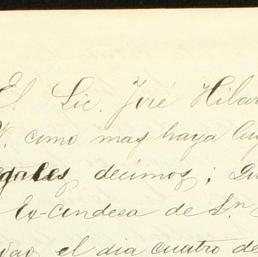 El Lic. José Hilar
V. como mas haya lug
gales, decimos; Qu
Ex-Condesa de Sn
vao, el dia cuatro de